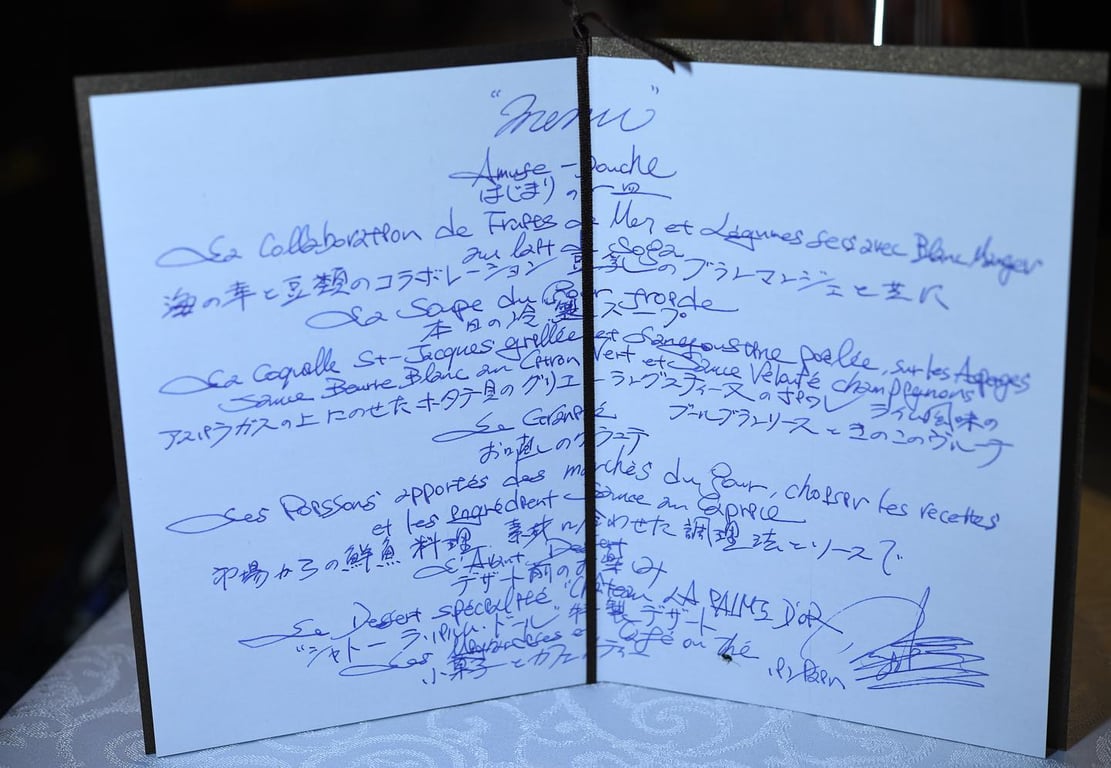 "Menu"
Amuse-bouche
はじまりの一皿
La Collaboration de Fruits de Mer et Légumes secs avec Blanc Manger
au lait de soja
海の幸と豆類のコラボレーション 豆乳のブランマンジェと共に
La Soupe du Jour froide
本日の冷製スープ
La Coquille St-Jacques grillée et Langoustine poêlée, sur les Asperges
Sauce Beurre Blanc au Citron Vert et Sauce Velouté champignons
アスパラガスの上にのせたホタテ貝のグリエ ラングスティーヌのポワレ ライム風味の
ブールブランソースときのこのヴルーテ
Le Granité
お口直しのグラニテ
Les Poissons apportés des marchés du Jour, choisir les recettes
et les ingrédient Sauce au Caprice
市場からの鮮魚料理 素材に合わせた調理法とソースで
L'Avant Dessert
デザート前のお楽しみ
Le Dessert spécialité "Château LA PALME D'OR
"シャトーラ・パルム・ドール"特製デザート
Les Mignardises et Café ou Thé
小菓子とカフェ